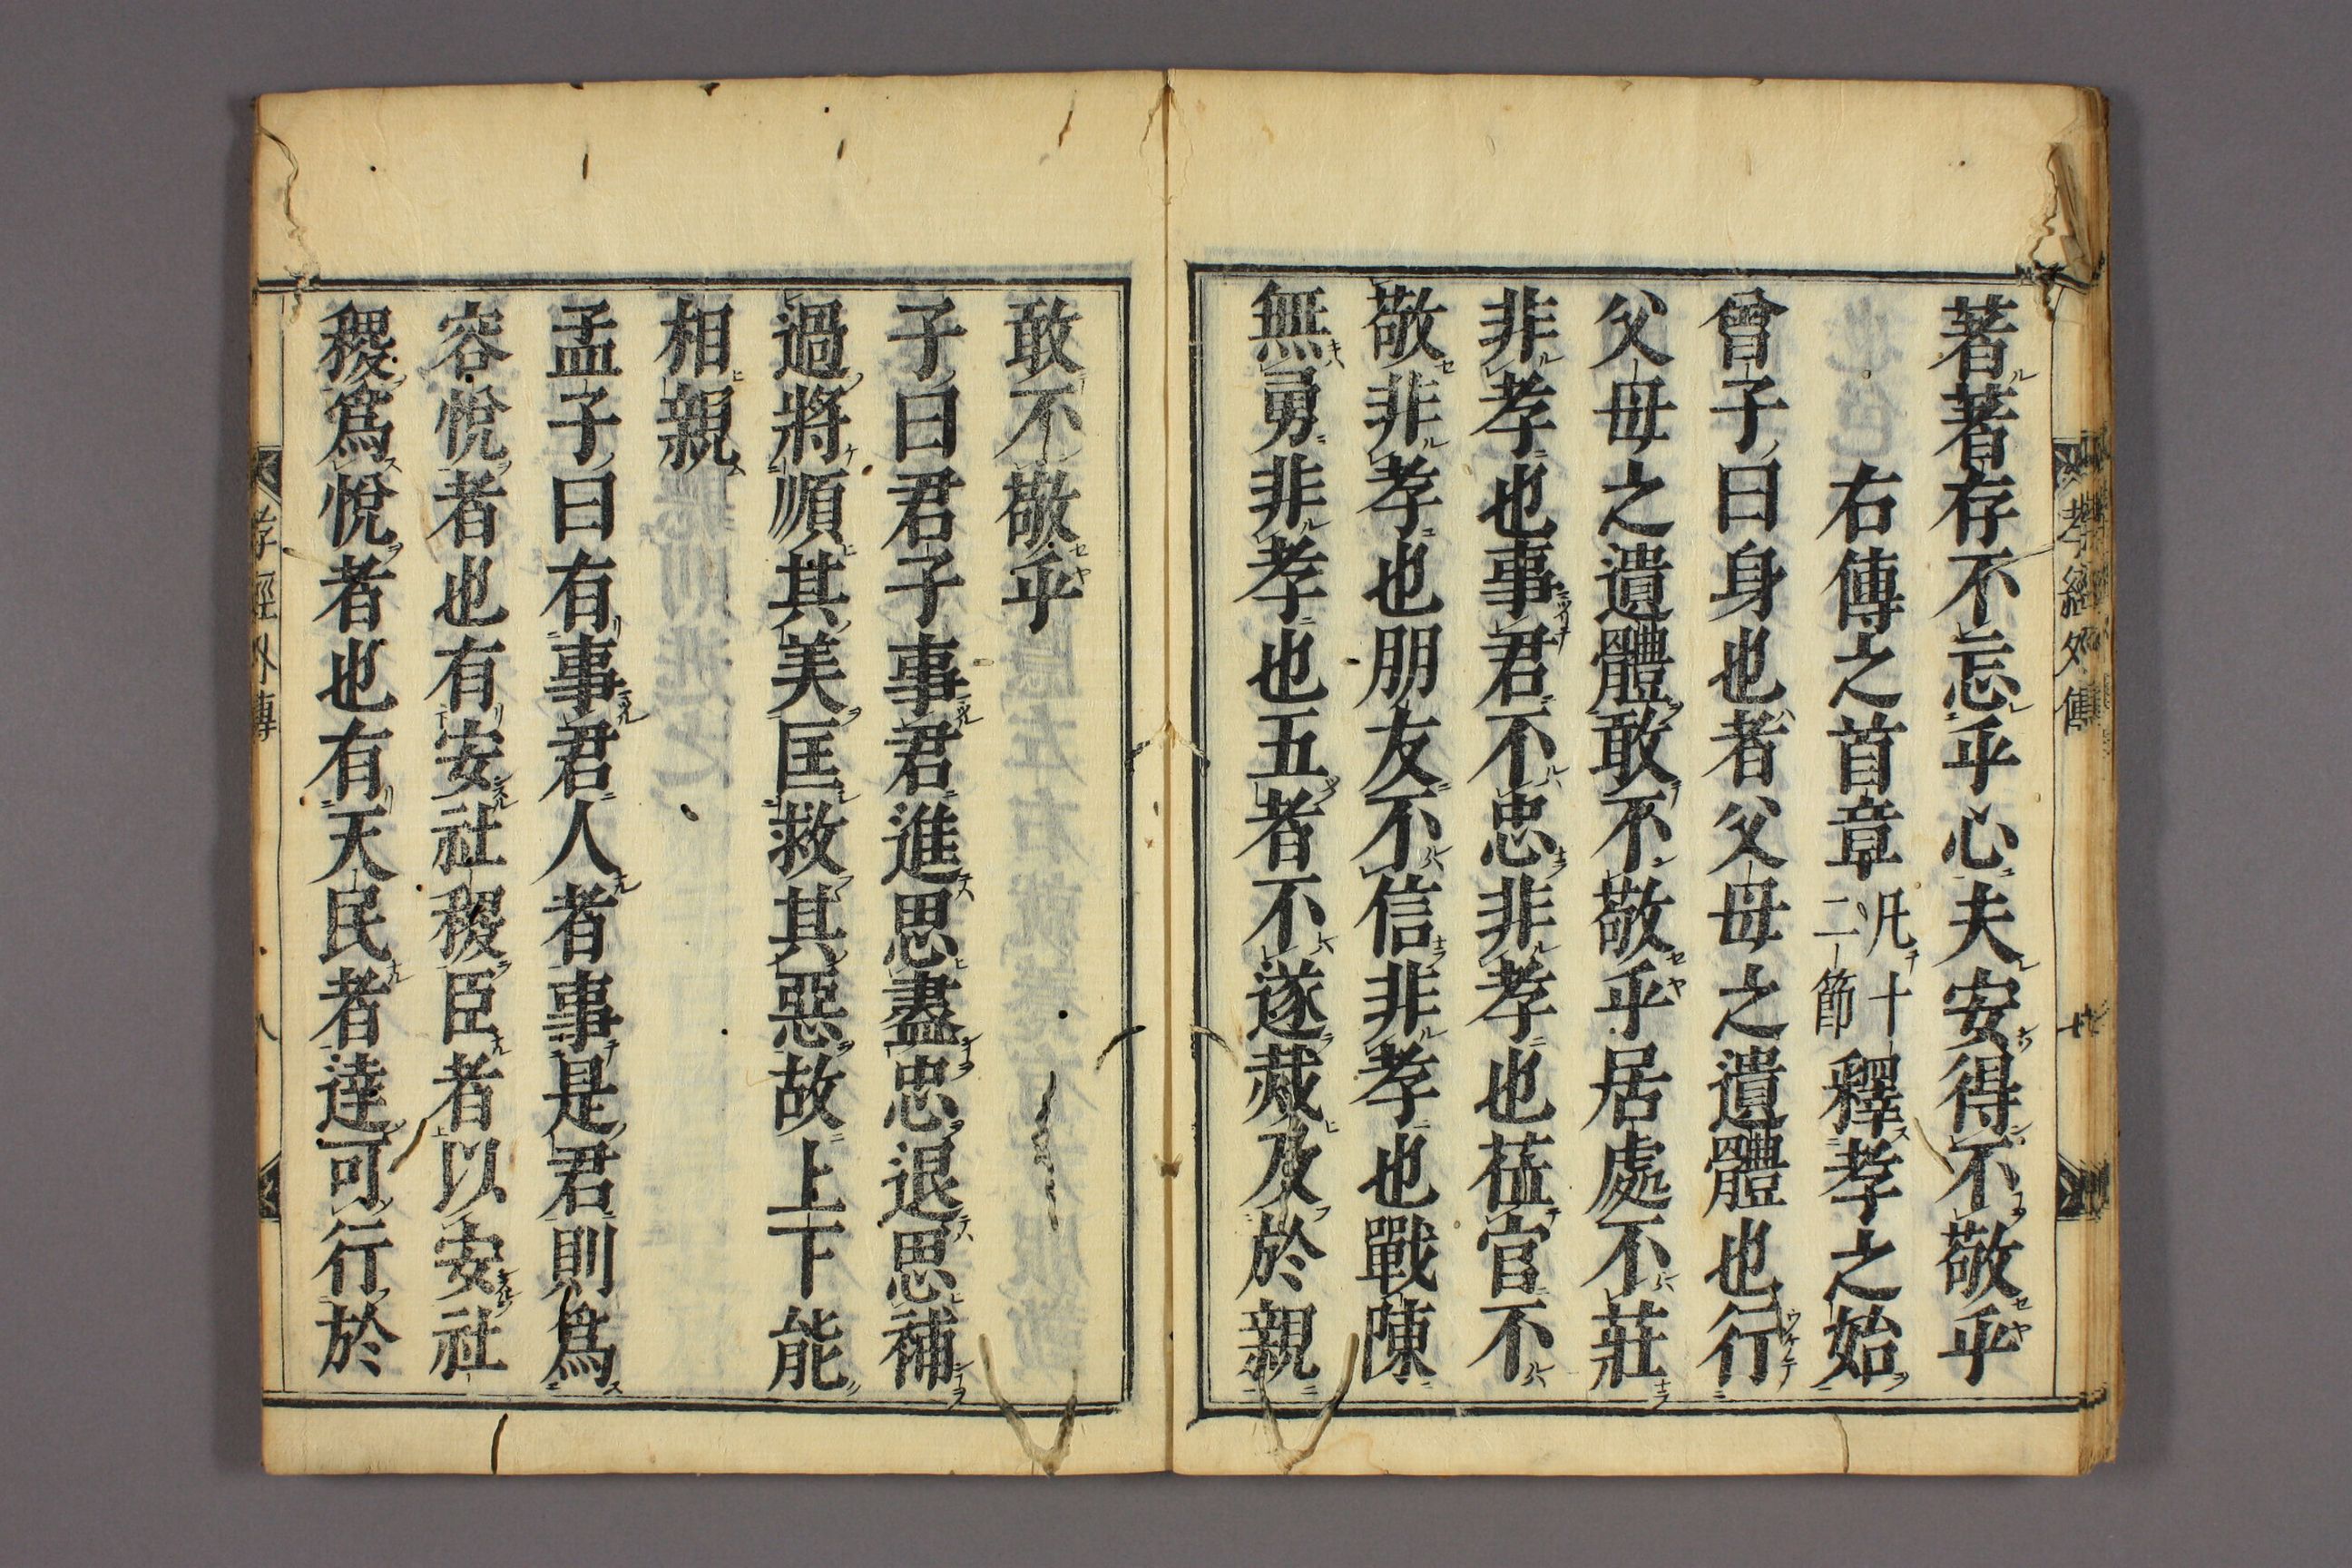 著著存不忘乎心夫安得不敬乎
右傳之首章凡十二節釋孝之始
曾子曰身也者父母之遺體也行
父母之遺體敢不敬乎居處不莊
非孝也事君不忠非孝也莅官不
敬非孝也朋友不信非孝也戰陳
無勇非孝也五者不遂烖及於親
敢不敬乎
子曰君子事君進思盡忠退思補
過將順其美匡救其惡故上下能
相親
孟子曰有事君人者事是君則爲
容悅者也有安社稷臣者以安社
稷爲悅者也有天民者達可行於